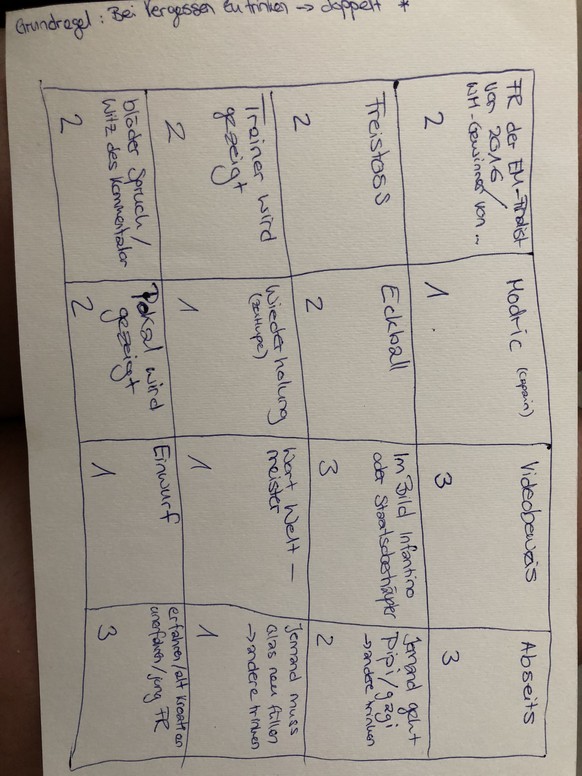 Grundregel: Bei Vergessen zu trinken → doppelt *
FR der EM-Finalist
von 2016 /
WM-Gewinner von ...
2
Modric (Captain)
1
Videobeweis
3
Abseits
3
Freistoss
2
Eckball
2
Im Bild Infantino
oder Staatsoberhäupter
3
Jemand geht
Pipi/gagi
→ andere trinken
2
Trainer wird
gezeigt
2
Wiederholung
(Zeitlupe)
1
Wort Welt-
meister
1
Jemand muss
Glas neu füllen
→ andere trinken
1
blöder Spruch /
Witz des Kommentator
2
Pokal wird
gezeigt
2
Einwurf
1
erfahren/alt Kroatien
unerfahren/jung FR
3